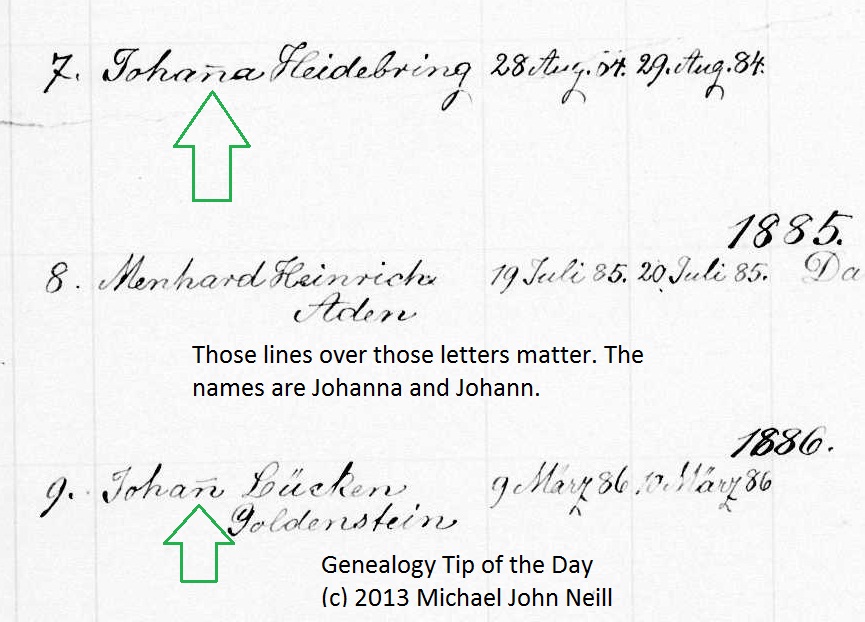 7. Johan̄a Heidebring 28 Aug. 84. 29. Aug. 84.
1885.
8. Menhard Heinrich 19 Juli 85. 20 Juli 85. Da
Aden
Those lines over those letters matter. The
names are Johanna and Johann.
1886.
9. Johan̄ Lücken 9 März 86 10 März 86
Goldenstein
Genealogy Tip of the Day
(c) 2013 Michael John Neill